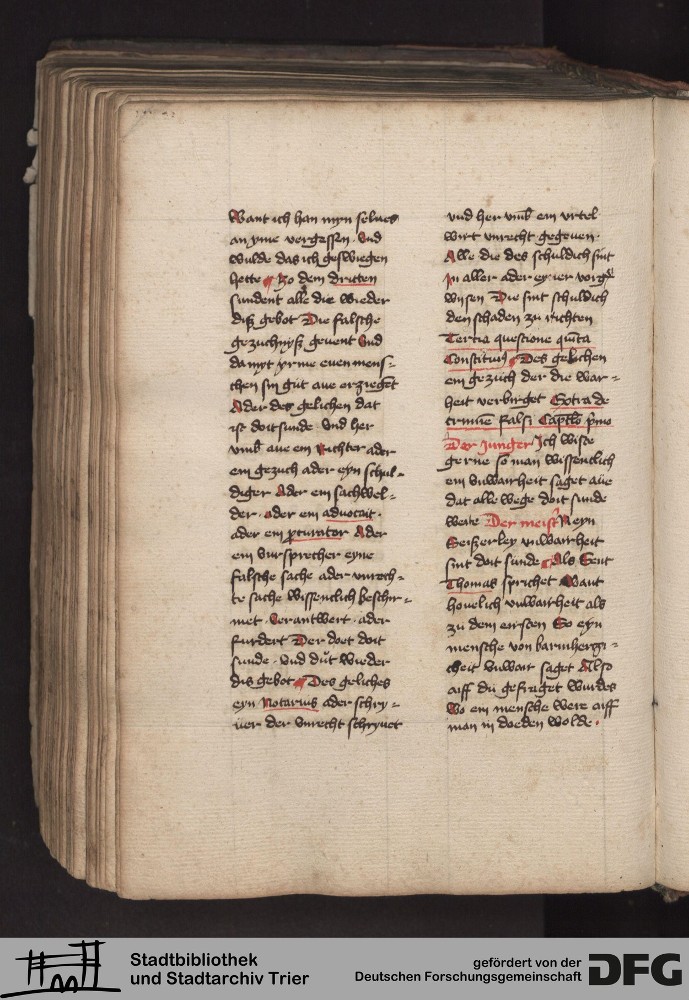 Want ich han myn selues
an yme vergessin · Vnd
wulde das ich geswiegen
hette Zo dem dritten
sundent alle die wieder
diß gebot Die falsche
gezuchnyß gevent Vnd
da myt yrme euen mens-
chen sin gut aue erzieget
Ader des gelichen dat
ist doit sunde Vnd her
vmb aue ein Richter ader
ein gezuch ader eyn schul-
diger Ader ein sachwel-
der · ader ein advocait ·
ader ein ꝓcurator Ader
ein vursprecher eyne
falsche sache ader vnrech-
te sache wissentlich beschir-
met · Verantwert · ader
furdert Der doet doit
sunde · Vnd dut wieder
dis gebot Des geliches
eyn Notarius ader schry-
uer der vnrecht schryuet
vnd her vmb ein vrtel
wirt vnrecht gegeuen ·
Alle die des schuldich sint
In aller ader
wysen Die sint schuldich
den schaden zu richten
Tercia questione
Des gelichen
ein gezuch der die war-
heit verbirget Extra de
crimine falsi
Der Junger Ich wiste
gerne so man wissentlich
ein vnwairheit saget aue
dat alle wege doit sunde
were Der meister Neyn
vnwarheit
sint doit sunde Als Sent
Thomas sprichet Want
houelich vnwairheit als
zu dem eirsten So eyn
mensche von barmhergi-
cheit vnwair saget Also
aiff du gefraget wurdes
Wo ein mensche were aiff
man in doeden wolde ·
Stadtbibliothek
und Stadtarchiv Trier
gefördert von der
Deutschen Forschungsgemeinschaft
DFG